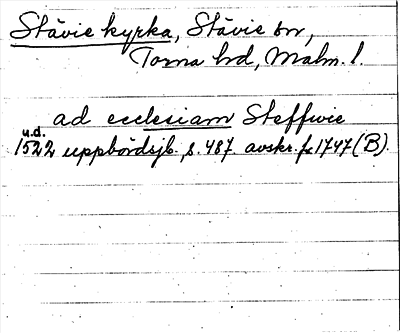 Stävie kyrka, Stävie sn,
Torna hd, Malm. l.
ad ecclesiam Steffwie
u.d.
1522 uppbördsjb. s. 487. avskr. fr 1747 (B).